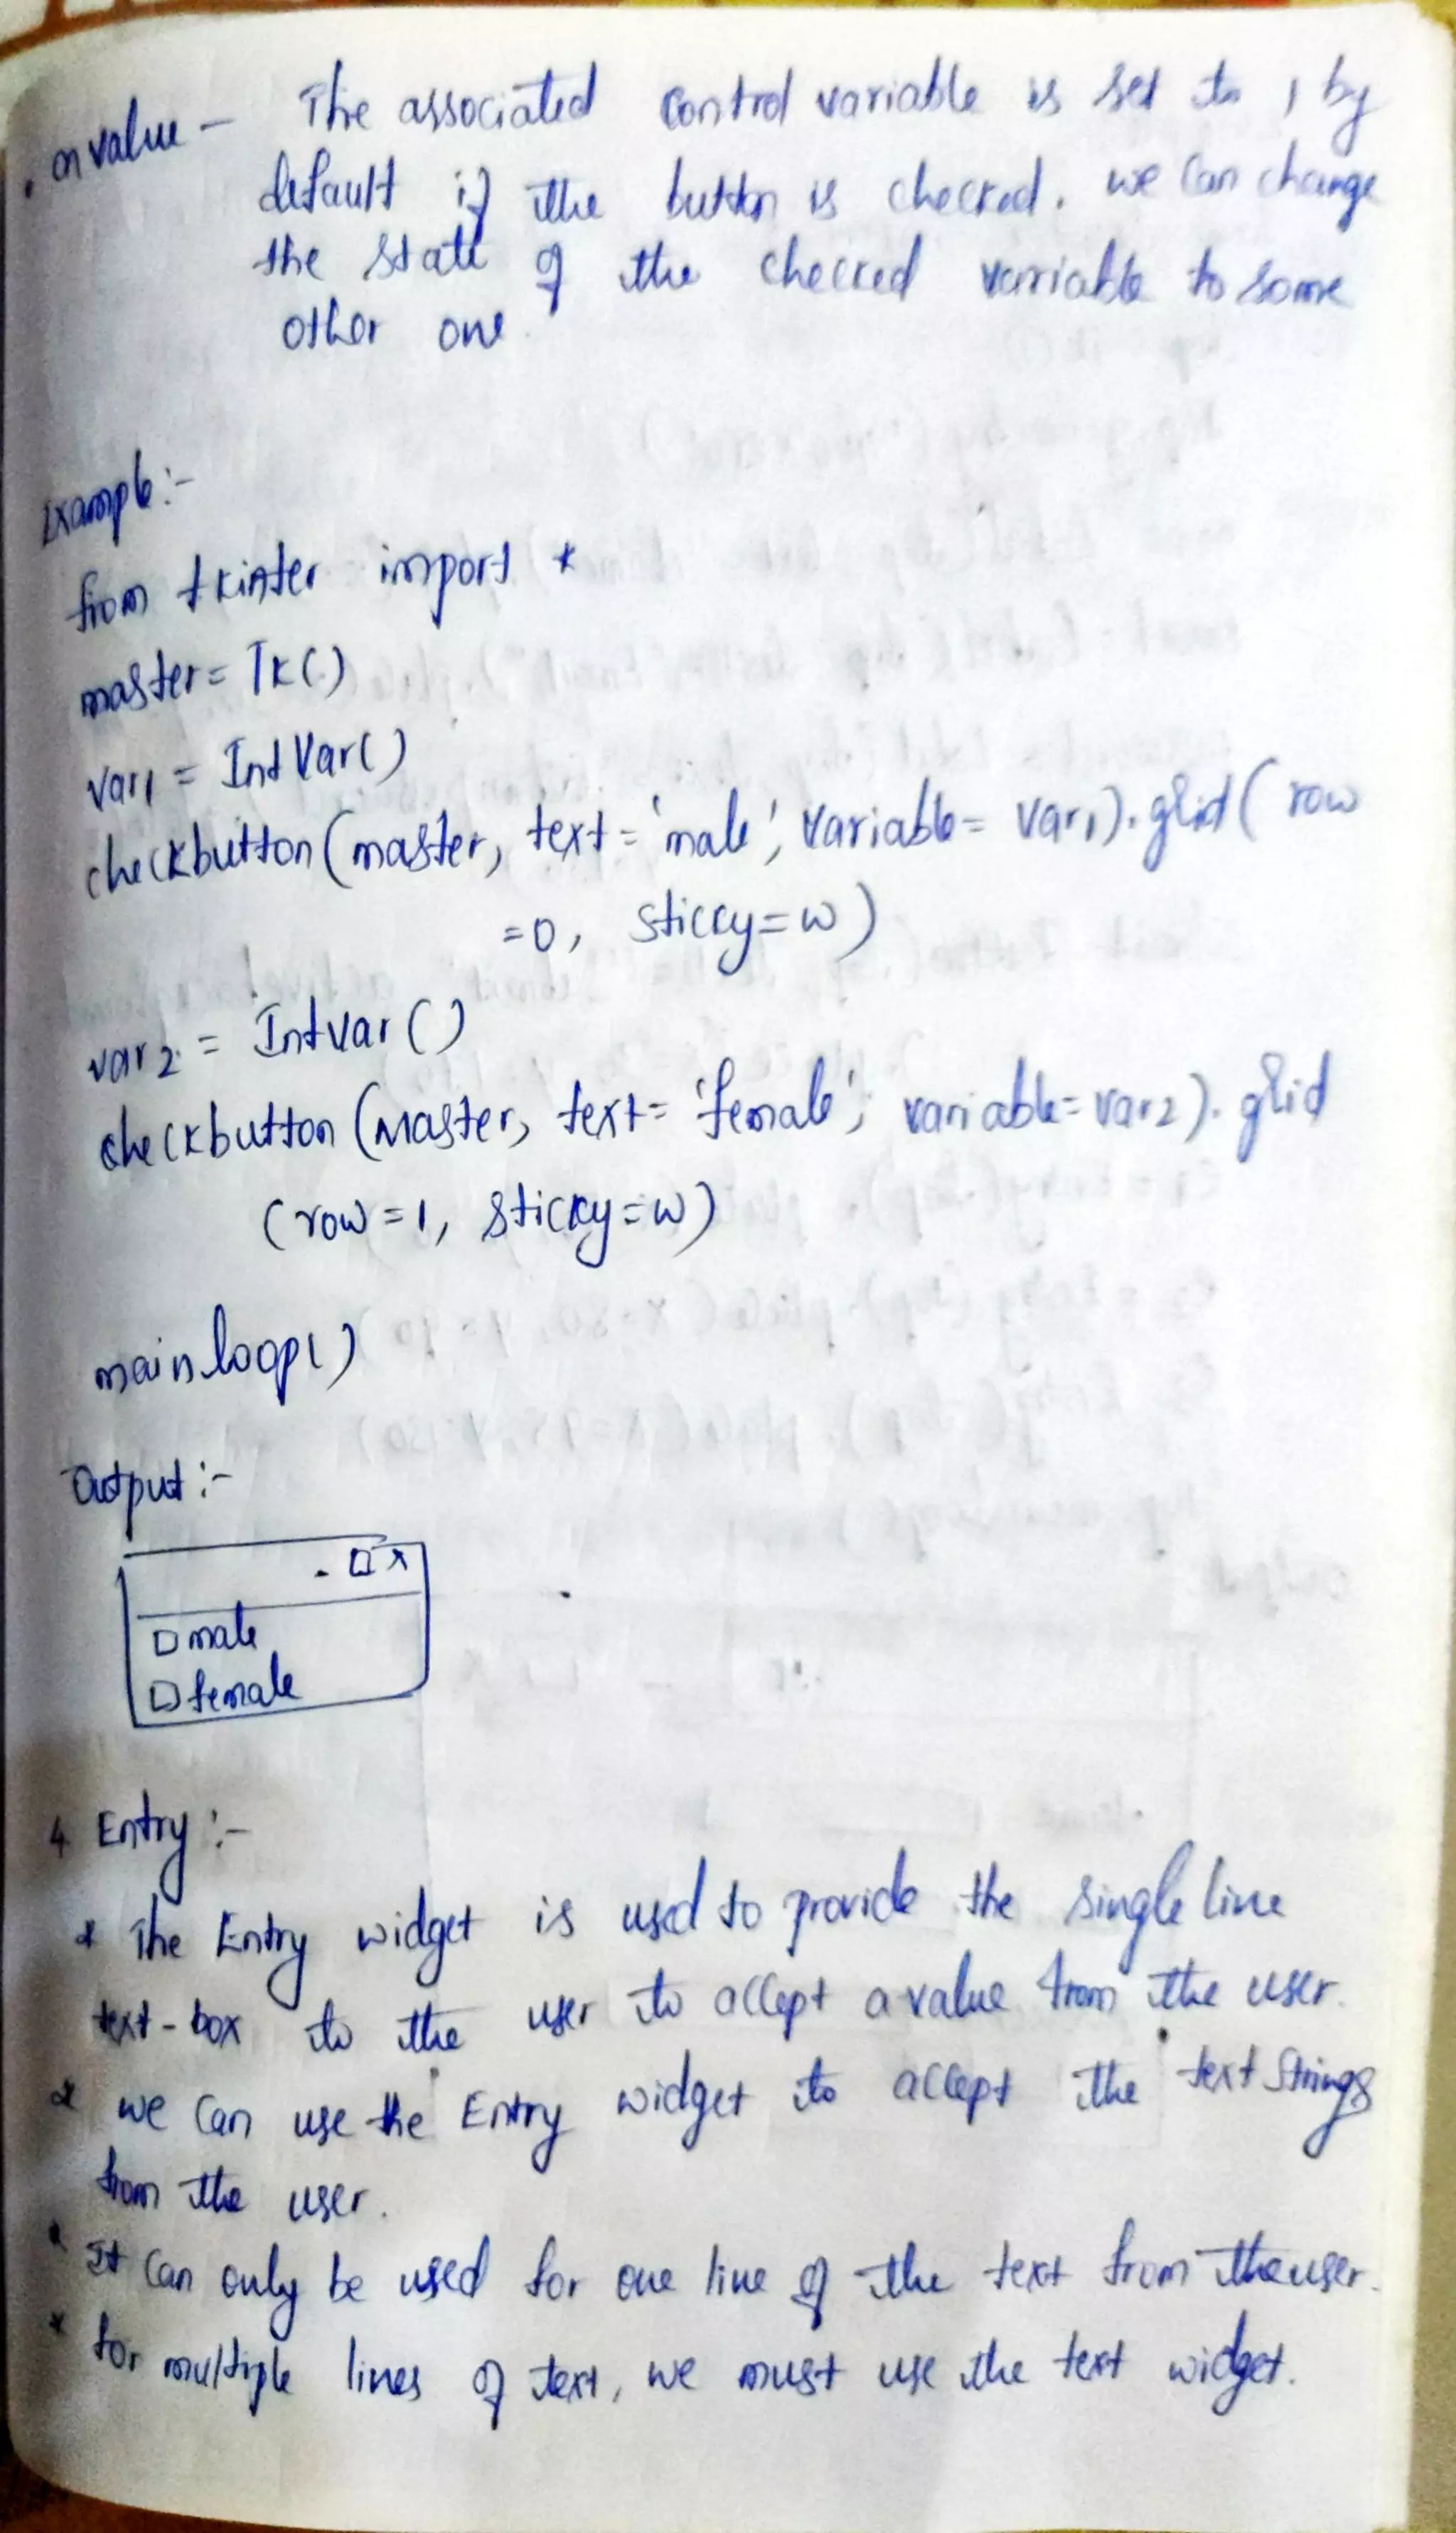 . onvalue - The associated control variable is set to 1 by
default if the button is checked. we can change
the state of the checked variable to some
other one.
Example:-
from tkinter import *
master = Tk()
var1 = IntVar()
checkbutton (master, text = 'male', variable = var1).grid( row
=0, sticky=w)
var2 = Intvar()
checkbutton (Master, text = 'female', variable = var2). grid
(row =1, sticky=w)
mainloop()
Output:-
- □ x
□ male
□ female
4. Entry :-
* The Entry widget is used to provide the single line
text-box to the user to accept a value from the user.
* we can use the Entry widget to accept the text strings
from the user.
* It can only be used for one line of the text from the user.
* for multiple lines of text, we must use the text widget.